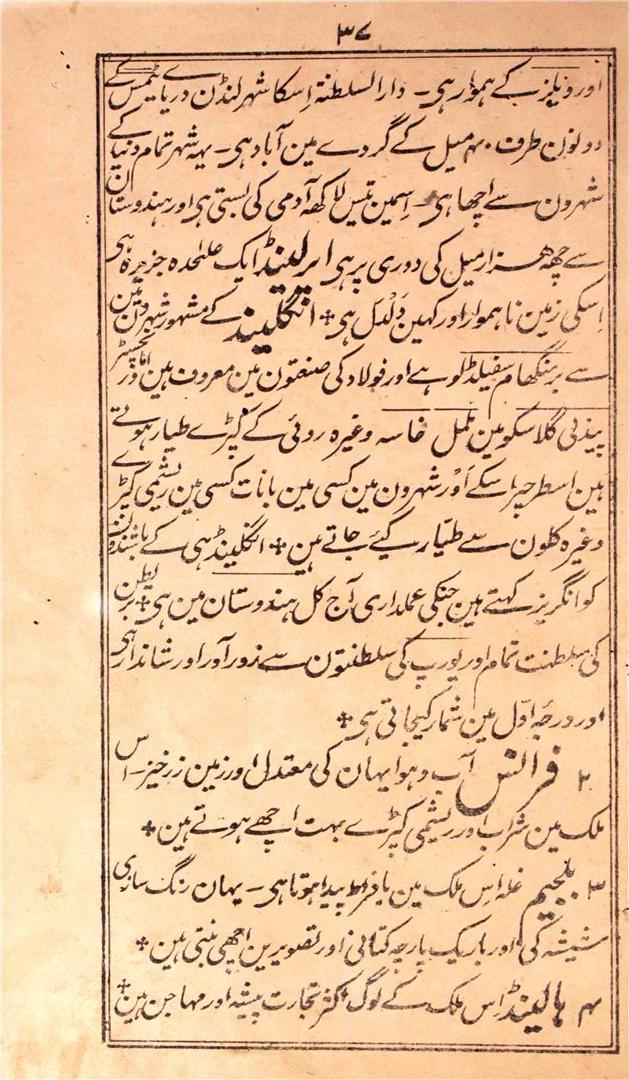 ۳۷
اور ویلز کے ہموار ہی ۔ دارالسلطنۃ اِسکا شہر لنڈن دریاے ٹیمس کے
دونون طرف ۴۰ میل کے گردے مین آباد ہی ۔ یہہ شہر تمام دنیا کے
شہرون سے اچھا ہی ۔ اِسمین تیس لاکھہ آدمی کی بستی ہی اور ہندوستان
سے چھہ ہزار میل کی دوری پر ہی ایرلینڈ ایک علٰحدہ جزیرہ ہی
اِسکی زمین ناہموار اور کہین دَلْدَل ہی + انگلینڈ کے مشہور شہرون مین
سے برمنگھام سفیلڈ لوہے اور فولاد کی صنعتون مین معروف ہین اور مانچسٹر
پیزلی گلاسکو مین ململ خاسہ وغیرہ روئی کے کپڑے طیار ہوتے
ہین اسطرحپر اسکے اَوْر شہرون مین کسی مین بانات کسی مین ریشمی کپڑے
وغیرہ کلون سے طیّار کیے جاتے ہین + انگلینڈ ہی کے باشندون
کو انگریز کہتے ہین جنکی عملداری آج کل ہندوستان مین ہی + برٹن
کی سلطنت تمام اور یورپ کی سلطنتون سے زور آور اور شاندار ہی
اور درجۂ اوّل مین شمار کیجاتی ہی +
۲ فرانس آب و ہوا یہان کی معتدل اور زمین زرخیز ۔ اس
ملک مین شراب اور ریشمی کپڑے بہت اچھے ہوتے ہین +
۳ بلجیم غلہ اس ملک مین بافراط پیدا ہوتا ہی ۔ یہان رنگ سازی
شیشہ کی اور باریک پارچہ کتانی اور تصویرین اچھی بنتی ہین +
۴ ہالینڈ اِس ملک کے لوگ اکثر تجارت پیشہ اور مہاجن ہین +